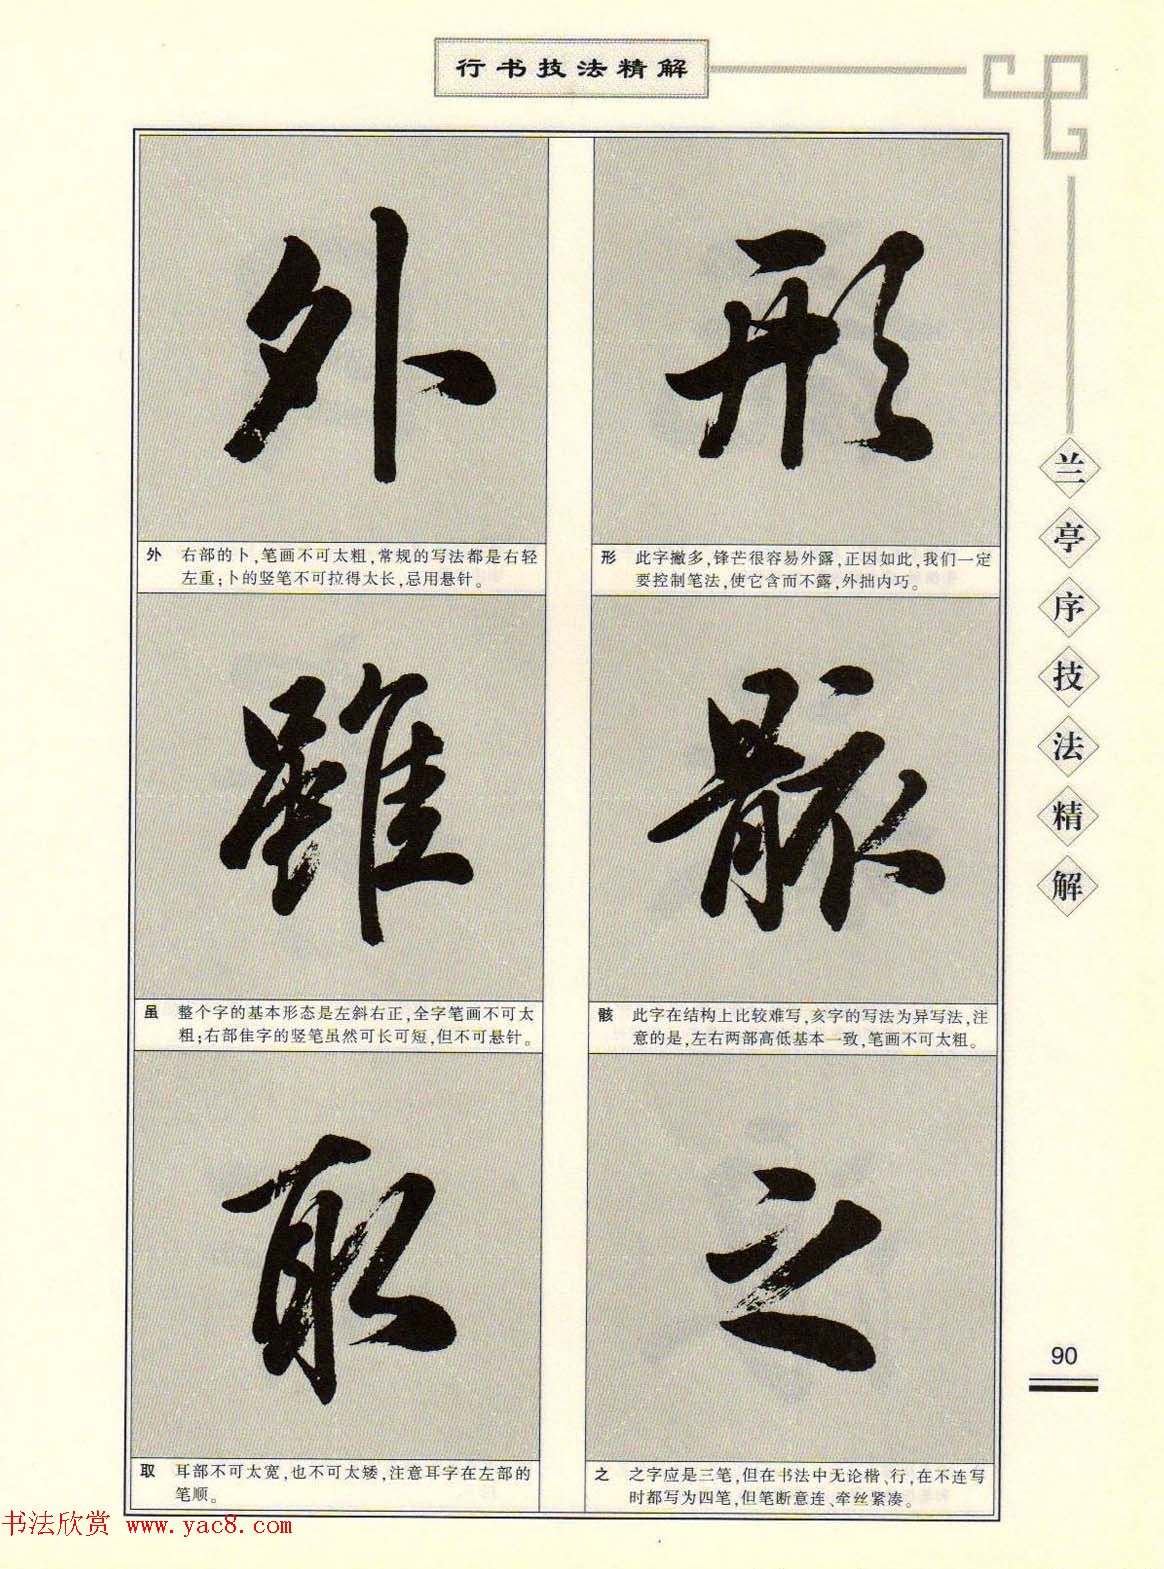 行书技法精解
形
形 此字撇多,锋芒很容易外露,正因如此,我们一定
要控制笔法,使它含而不露,外拙内巧。
骸
骸 此字在结构上比较难写,亥字的写法为异写法,注
意的是,左右两部高低基本一致,笔画不可太粗。
之
之 之字应是三笔,但在书法中无论楷、行,在不连写
时都写为四笔,但笔断意连、牵丝紧凑。
外
外 右部的卜,笔画不可太粗,常规的写法都是右轻
左重;卜的竖笔不可拉得太长,忌用悬针。
雖
虽 整个字的基本形态是左斜右正,全字笔画不可太
粗;右部隹字的竖笔虽然可长可短,但不可悬针。
取
取 耳部不可太宽,也不可太矮,注意耳字在左部的
笔顺。
兰亭序技法精解
90
书法欣赏 www.yac8.com